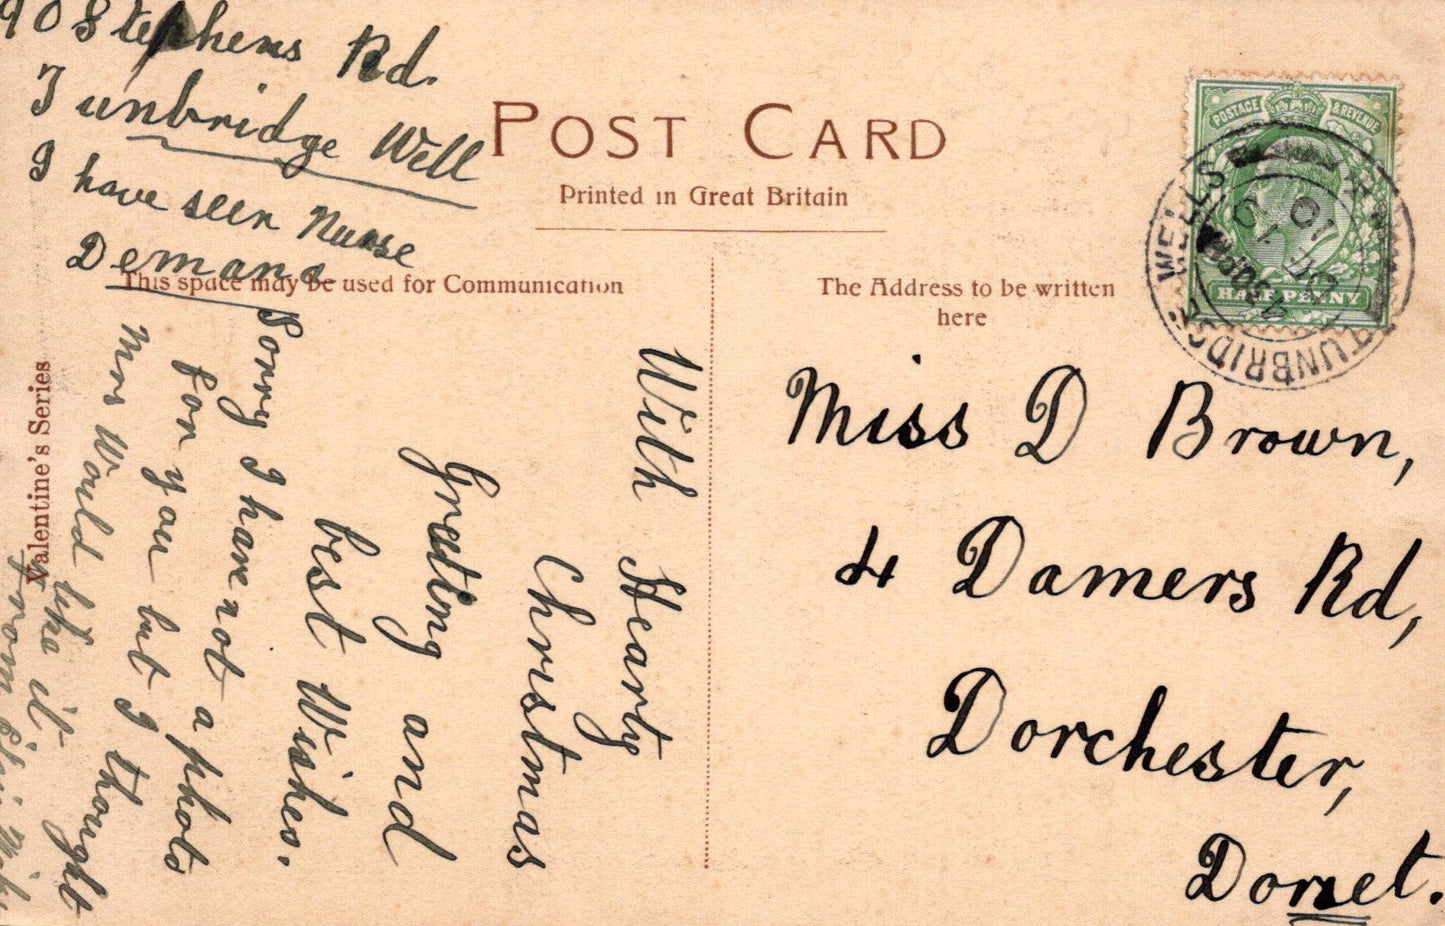 90 Stephens Rd.
Tunbridge Well
I have seen Nurse
Demana
POST CARD
Printed in Great Britain
This space may be used for Communication
The Address to be written
here
Valentine's Series
POSTAGE & REVENUE
HALF PENNY
TUNBRIDGE WELLS
With Hearty
Christmas
Greeting and
best Wishes.
Sorry I have not a photo
for you but I thought
Mrs Would like it
From
Miss D Brown,
4 Damers Rd,
Dorchester,
Dorset.